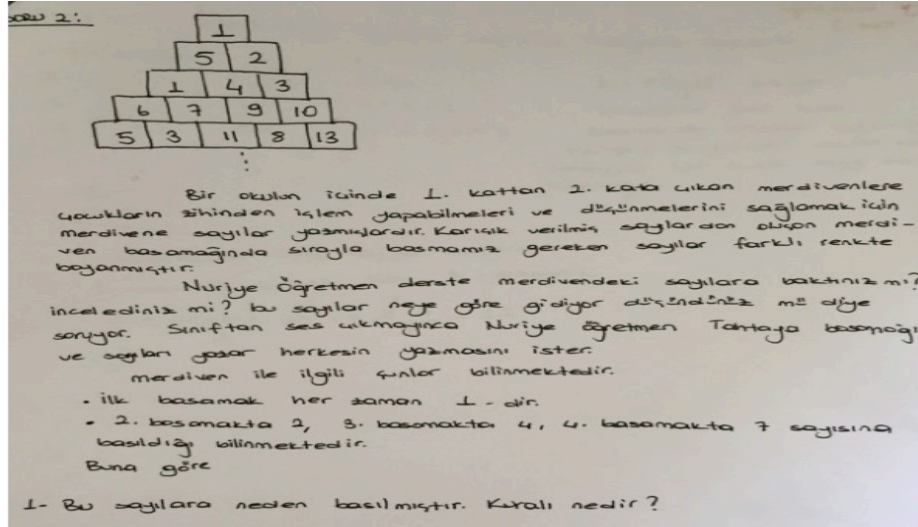 SORU 2:
1
5 2
1 4 3
6 7 9 10
5 3 11 8 13
Bir okulun içinde 1. kattan 2. kata çıkan merdivenlere
çocukların zihinden işlem yapabilmeleri ve düşünmelerini sağlamak için
merdivene sayılar yazmışlardır. Karışık verilmiş sayılardan oluşan merdi-
ven basamağında sırayla basmamız gereken sayılar farklı renkte
boyanmıştır.
Nuriye Öğretmen derste merdivendeki sayılara baktınız mı?
incelediniz mi? bu sayılar neye göre gidiyor düşündünüz mü diye
soruyor. Sınıftan ses çıkmayınca Nuriye öğretmen Tahtaya basamağı
ve sayıları yazar herkesin yazmasını ister.
merdiven ile ilgili şunlar bilinmektedir.
• ilk basamak her zaman 1-dir.
• 2. basamakta 2, 3. basamakta 4, 4. basamakta 7 sayısına
basıldığı bilinmektedir.
Buna göre
1- Bu sayılara neden basılmıştır. Kuralı nedir?